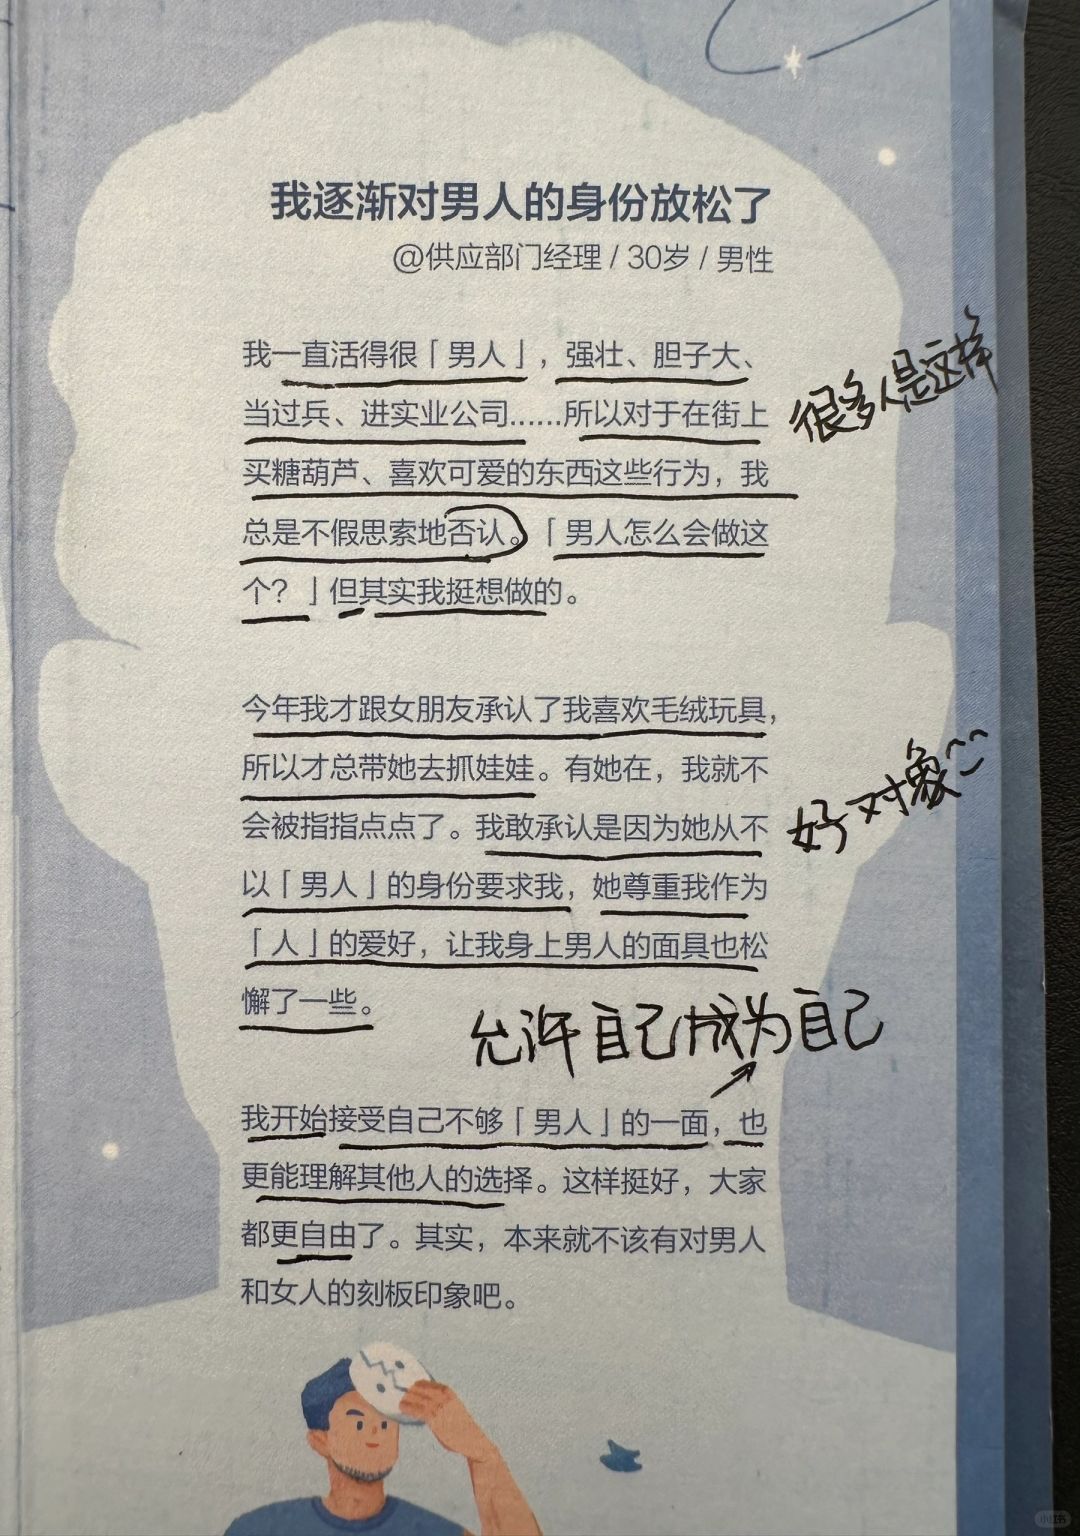 我逐渐对男人的身份放松了
@供应部门经理 / 30岁 / 男性
我一直活得很「男人」，强壮、胆子大、
当过兵、进实业公司……所以对于在街上
买糖葫芦、喜欢可爱的东西这些行为，我
总是不假思索地否认。「男人怎么会做这
个？」但其实我挺想做的。
很多人是这样
今年我才跟女朋友承认了我喜欢毛绒玩具，
所以才总带她去抓娃娃。有她在，我就不
会被指指点点了。我敢承认是因为她从不
以「男人」的身份要求我，她尊重我作为
「人」的爱好，让我身上男人的面具也松
懈了一些。
好对象^^
允许自己成为自己
我开始接受自己不够「男人」的一面，也
更能理解其他人的选择。这样挺好，大家
都更自由了。其实，本来就不该有对男人
和女人的刻板印象吧。
小红书